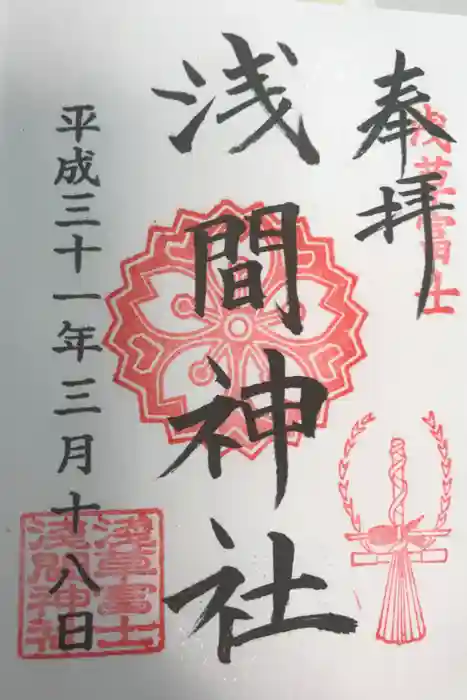 奉拝
浅草富士
浅間神社
平成三十一年三月十八日
浅草富士
浅間神社